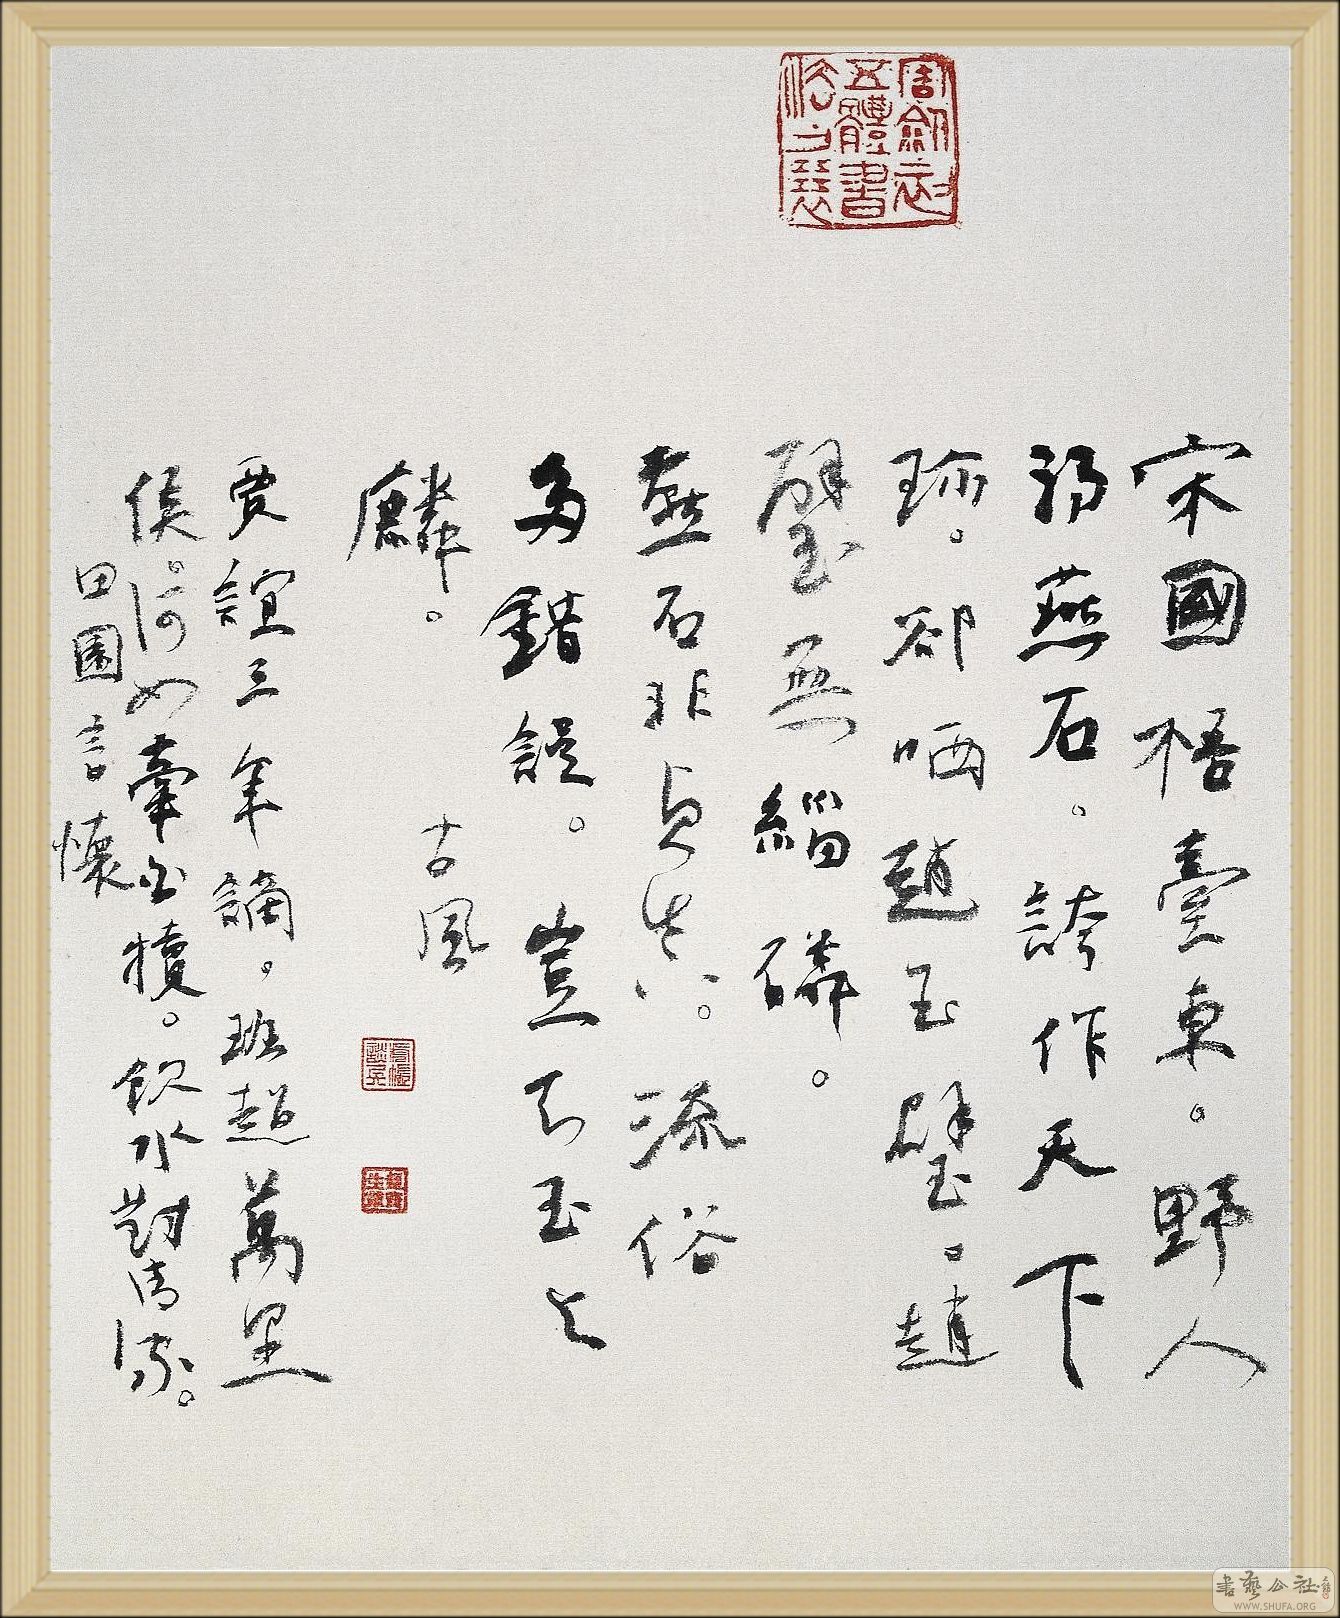 宋國梧臺東。野人
得燕石。誇作天下
珍。卻哂趙玉璧。趙
璧無緇磷。
燕石非貞真。流俗
多錯誤。豈知玉與
麟。
古風
賈誼三年謫。班超萬里
侯。何如牽白犢。飲水對清流。
田園言懷
書藝公社
WWW.SHUFA.ORG